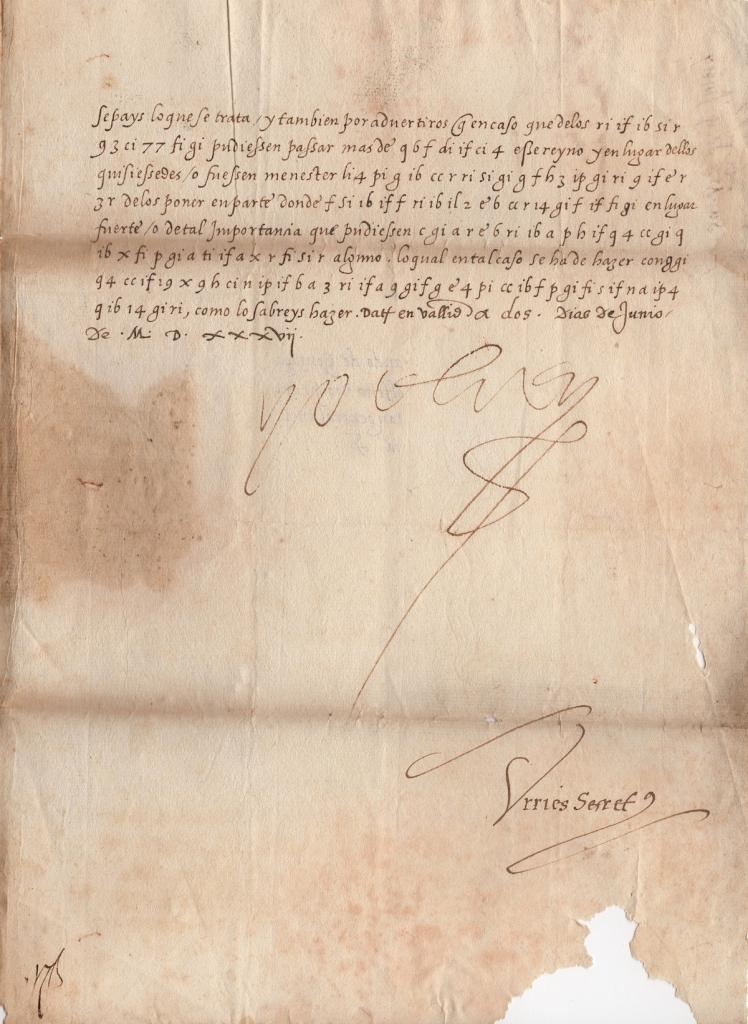 sepays lo que se trata / y tambien por advertiros q̃ en caso que delos ri if ib si r
93 ci 77 fi gi pudiessen passar mas de q b f di if ci 4 esse reyno y en lugar dellos
quisiessedes / o fuessen menester li4 pi g ib cc r ri si gi g f h 3 ip gi ri 9 if e r
3r delos poner en parte donde f si ib if f ri ib il 2 e b cc r 14 gi f if fi gi en lugar
fuerte / o de tal Importancia que pudiessen c gi a r e b ri ib a p h if q 4 cc gi q
ib x fi p gi a ti if a x r fi si r alguno . lo qual en tal caso se ha de hazer con ggi
q4 cc if 19 x 9 h ci n ip if b a 3 ri if a 9 gif g e 4 pi cc ib f p gi fi s if n a ip4
q ib 14 gi ri, como lo sabreys hazer. Datt en Vallid a dos . Dias de Junio /
De . M . D . xxxvij .
yo el rey
Urries Secret